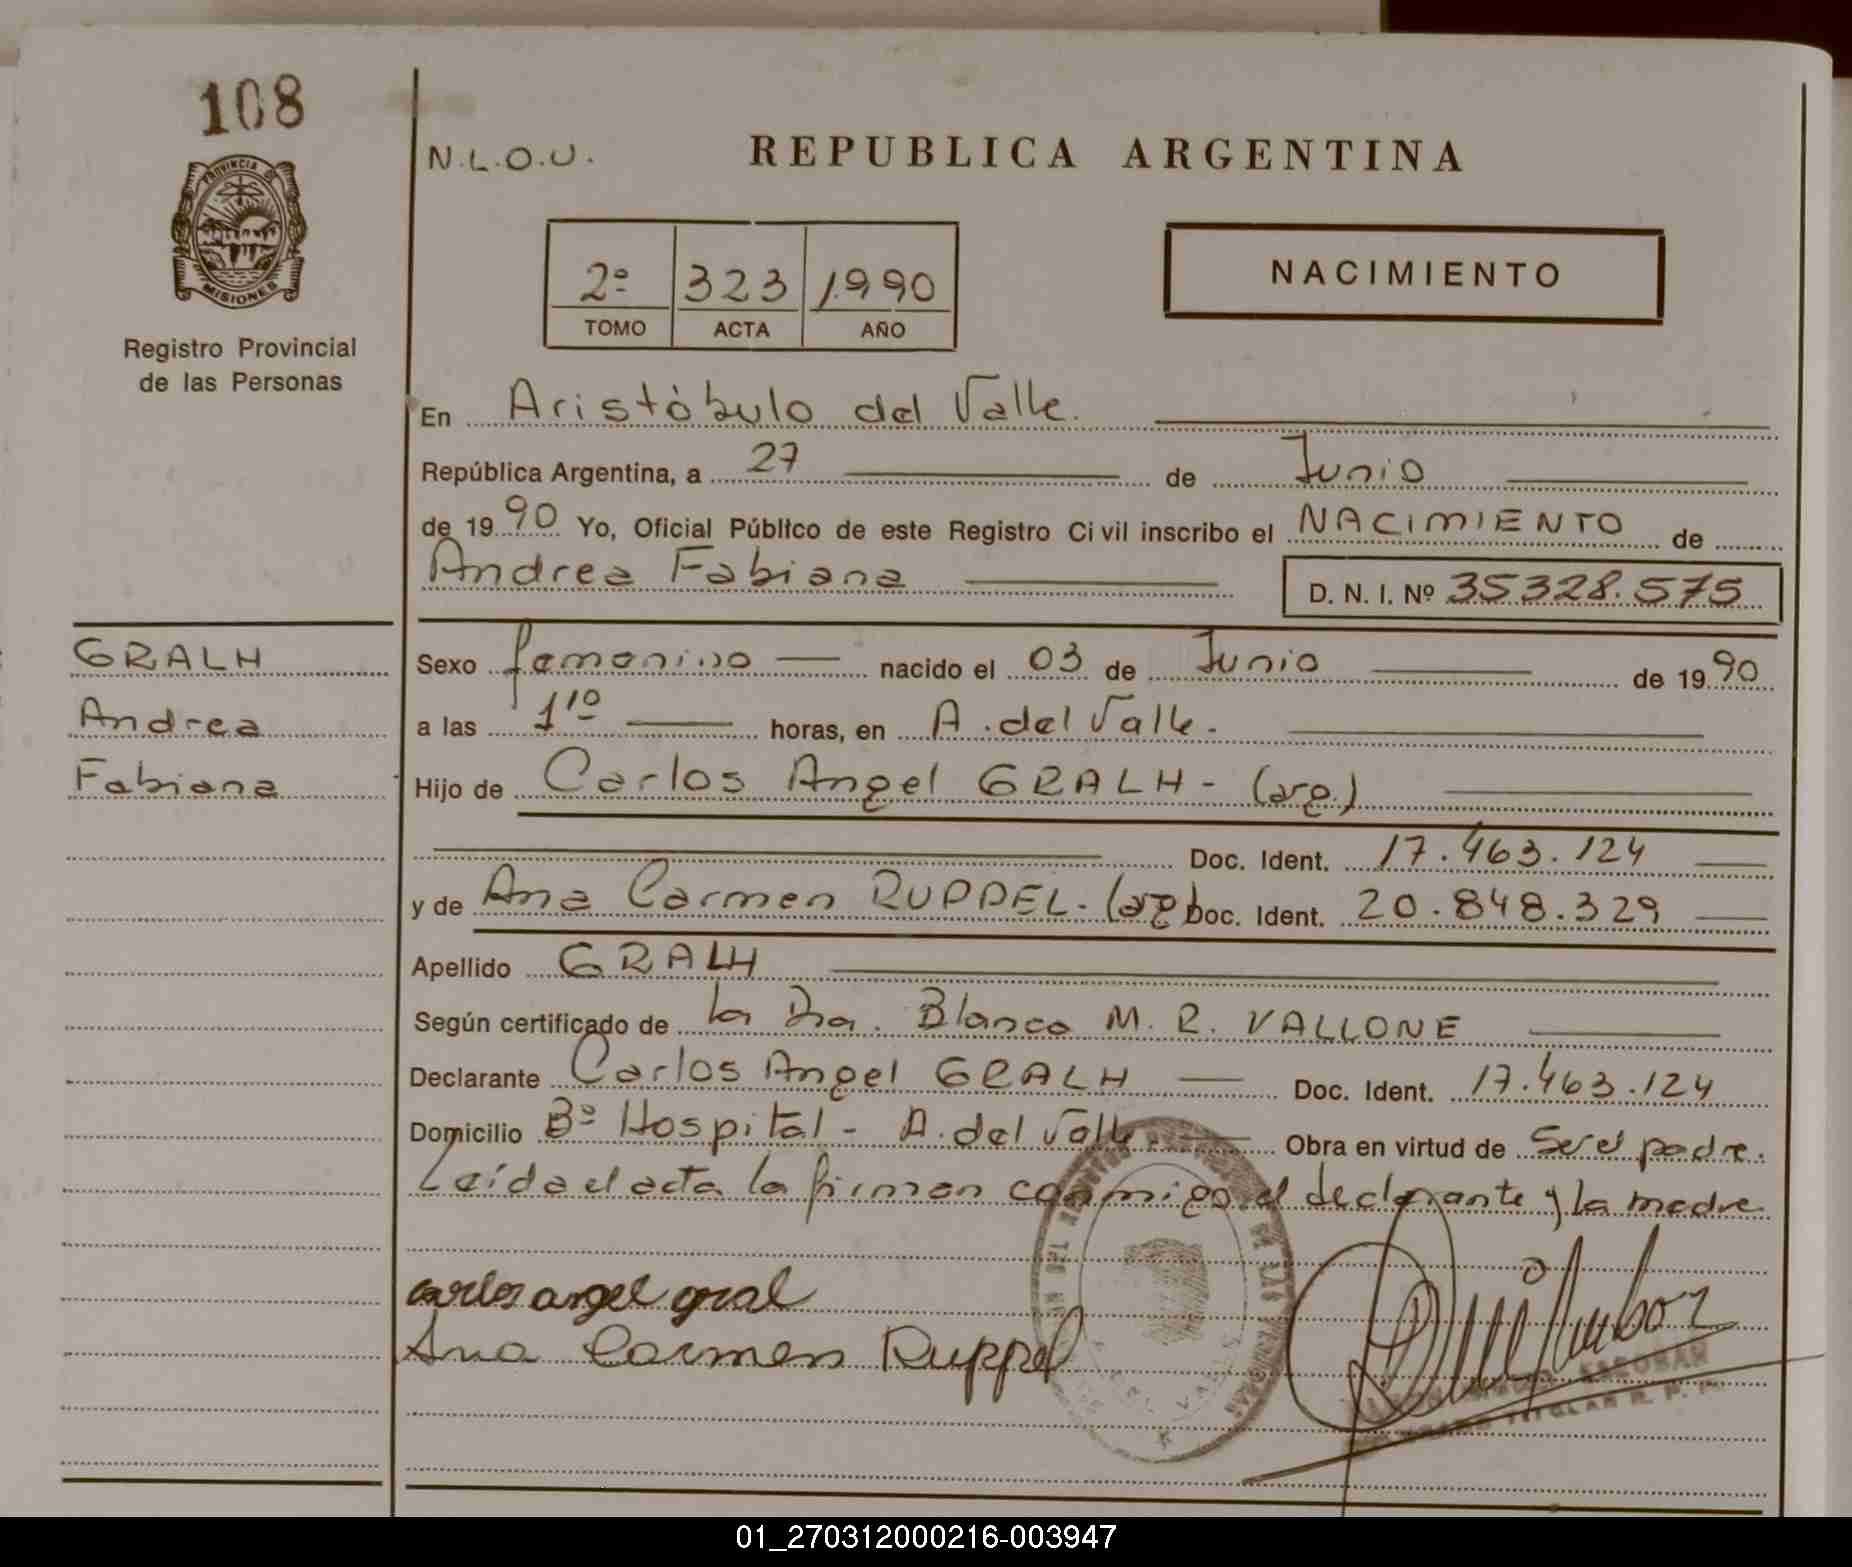 108
N.L.O.U.
REPUBLICA ARGENTINA
PROVINCIA DE
MISIONES
Registro Provincial
de las Personas
2º 323 1990
TOMO ACTA AÑO
NACIMIENTO
En Aristóbulo del Valle.
República Argentina, a 27 de Junio
de 1990 Yo, Oficial Público de este Registro Civil inscribo el NACIMIENTO de
Andrea Fabiana D. N. I. Nº 35328.575
GRALH
Andrea
Fabiana
Sexo femenino nacido el 03 de Junio de 1990
a las 110 horas, en A. del Valle.
Hijo de Carlos Angel GRALH - (arg.)
Doc. Ident. 17.463.124
y de Ana Carmen RUPPEL. (arg) Doc. Ident. 20.848.329
Apellido GRALH
Según certificado de la Dra. Blanca M. R. VALLONE
Declarante Carlos Angel GRALH Doc. Ident. 17.463.124
Domicilio Bº Hospital - A. del Valle. Obra en virtud de Ser el padre.
Leída el acta la firman conmigo el declarante y la madre
carlos angel gral
Ana Carmen Ruppel
TITULAR R. P. P.
01_270312000216-003947